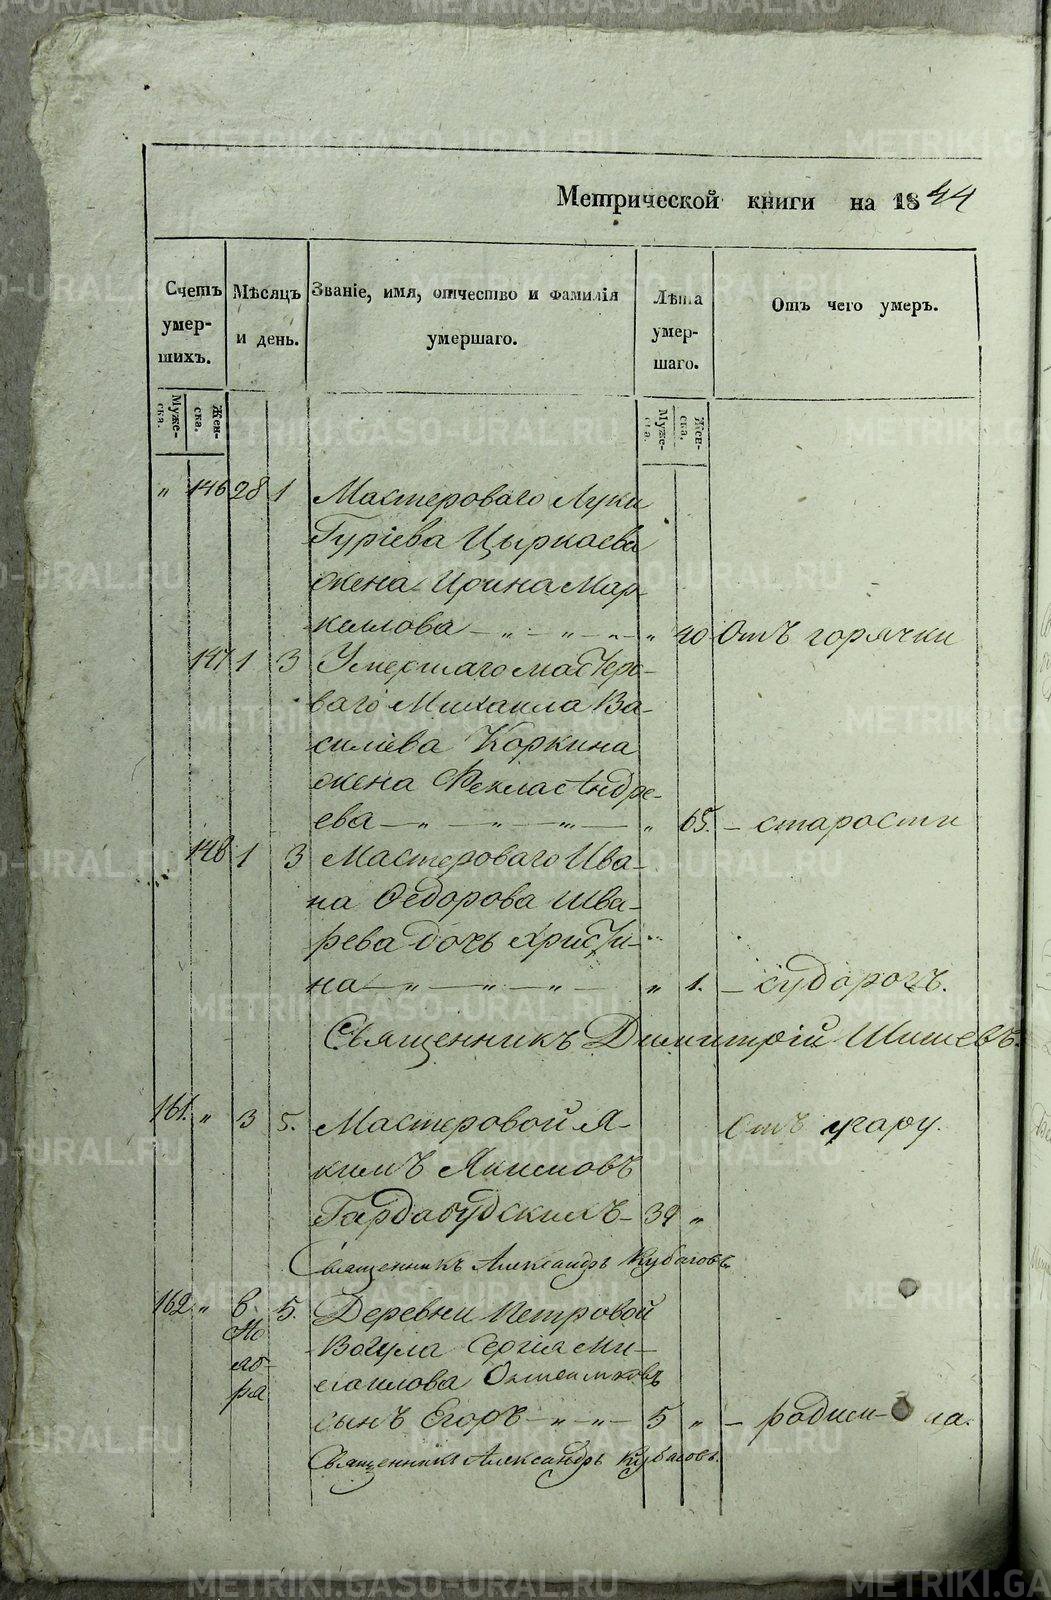 Метрической книги на 1844
Счетъ умершихъ.
Мѣсяцъ и день.
Званіе, имя, отчество и фамилія умершаго.
Лѣта умершаго.
Отъ чего умеръ.
Мужеска. Женска.
Мужеска. Женска.
" 146 28 1 Мастероваго Луки
Гуріева Цыркаева
жена Ирина Мар-
келлова — " — " — " — " 40 Отъ горячки
147 1 3 Умершаго мастеро-
ваго Михаила Ва-
силіева Коркина
жена Фекла Андре-
ева — " — " — " — " 65. — старости
148 1 3 Мастероваго Ива-
на Ѳедорова Шва-
рева дочь Христи-
на — " — " — " — " 1. — судорогъ.
Священникъ Димитрій Шишевъ.
161. " 3 5. Мастеровой Я-
кимъ Якимовъ
Отъ угару.
Гардабудскихъ — 39 "
Священникъ Александръ Кубасовъ.
162 " 6. 5. Деревни Петровой
Но
Вогула Сергія Ми-
яб-
ра
сынъ Егоръ — " — " — 5 " — родим- ца.
Священникъ Александръ Кубасовъ.
METRIKI.GASO-URAL.RU